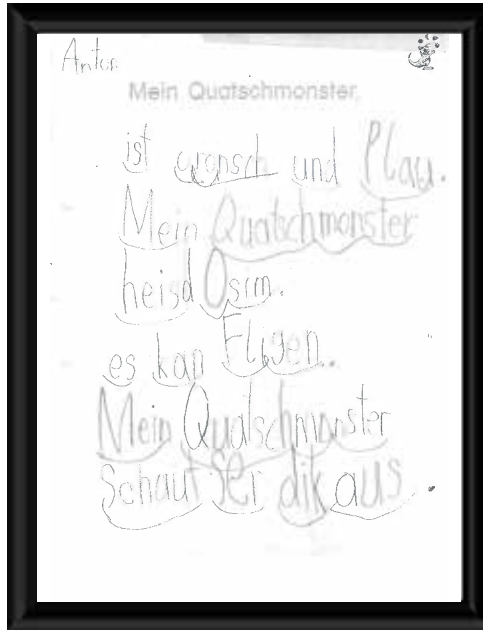 Anton
Mein Quatschmonster,
ist oronsch und Plau.
Mein Quatschmonster
heisd Osim.
es kan Fligen.
Mein Quatschmonster
Schaut SEr dik aus.